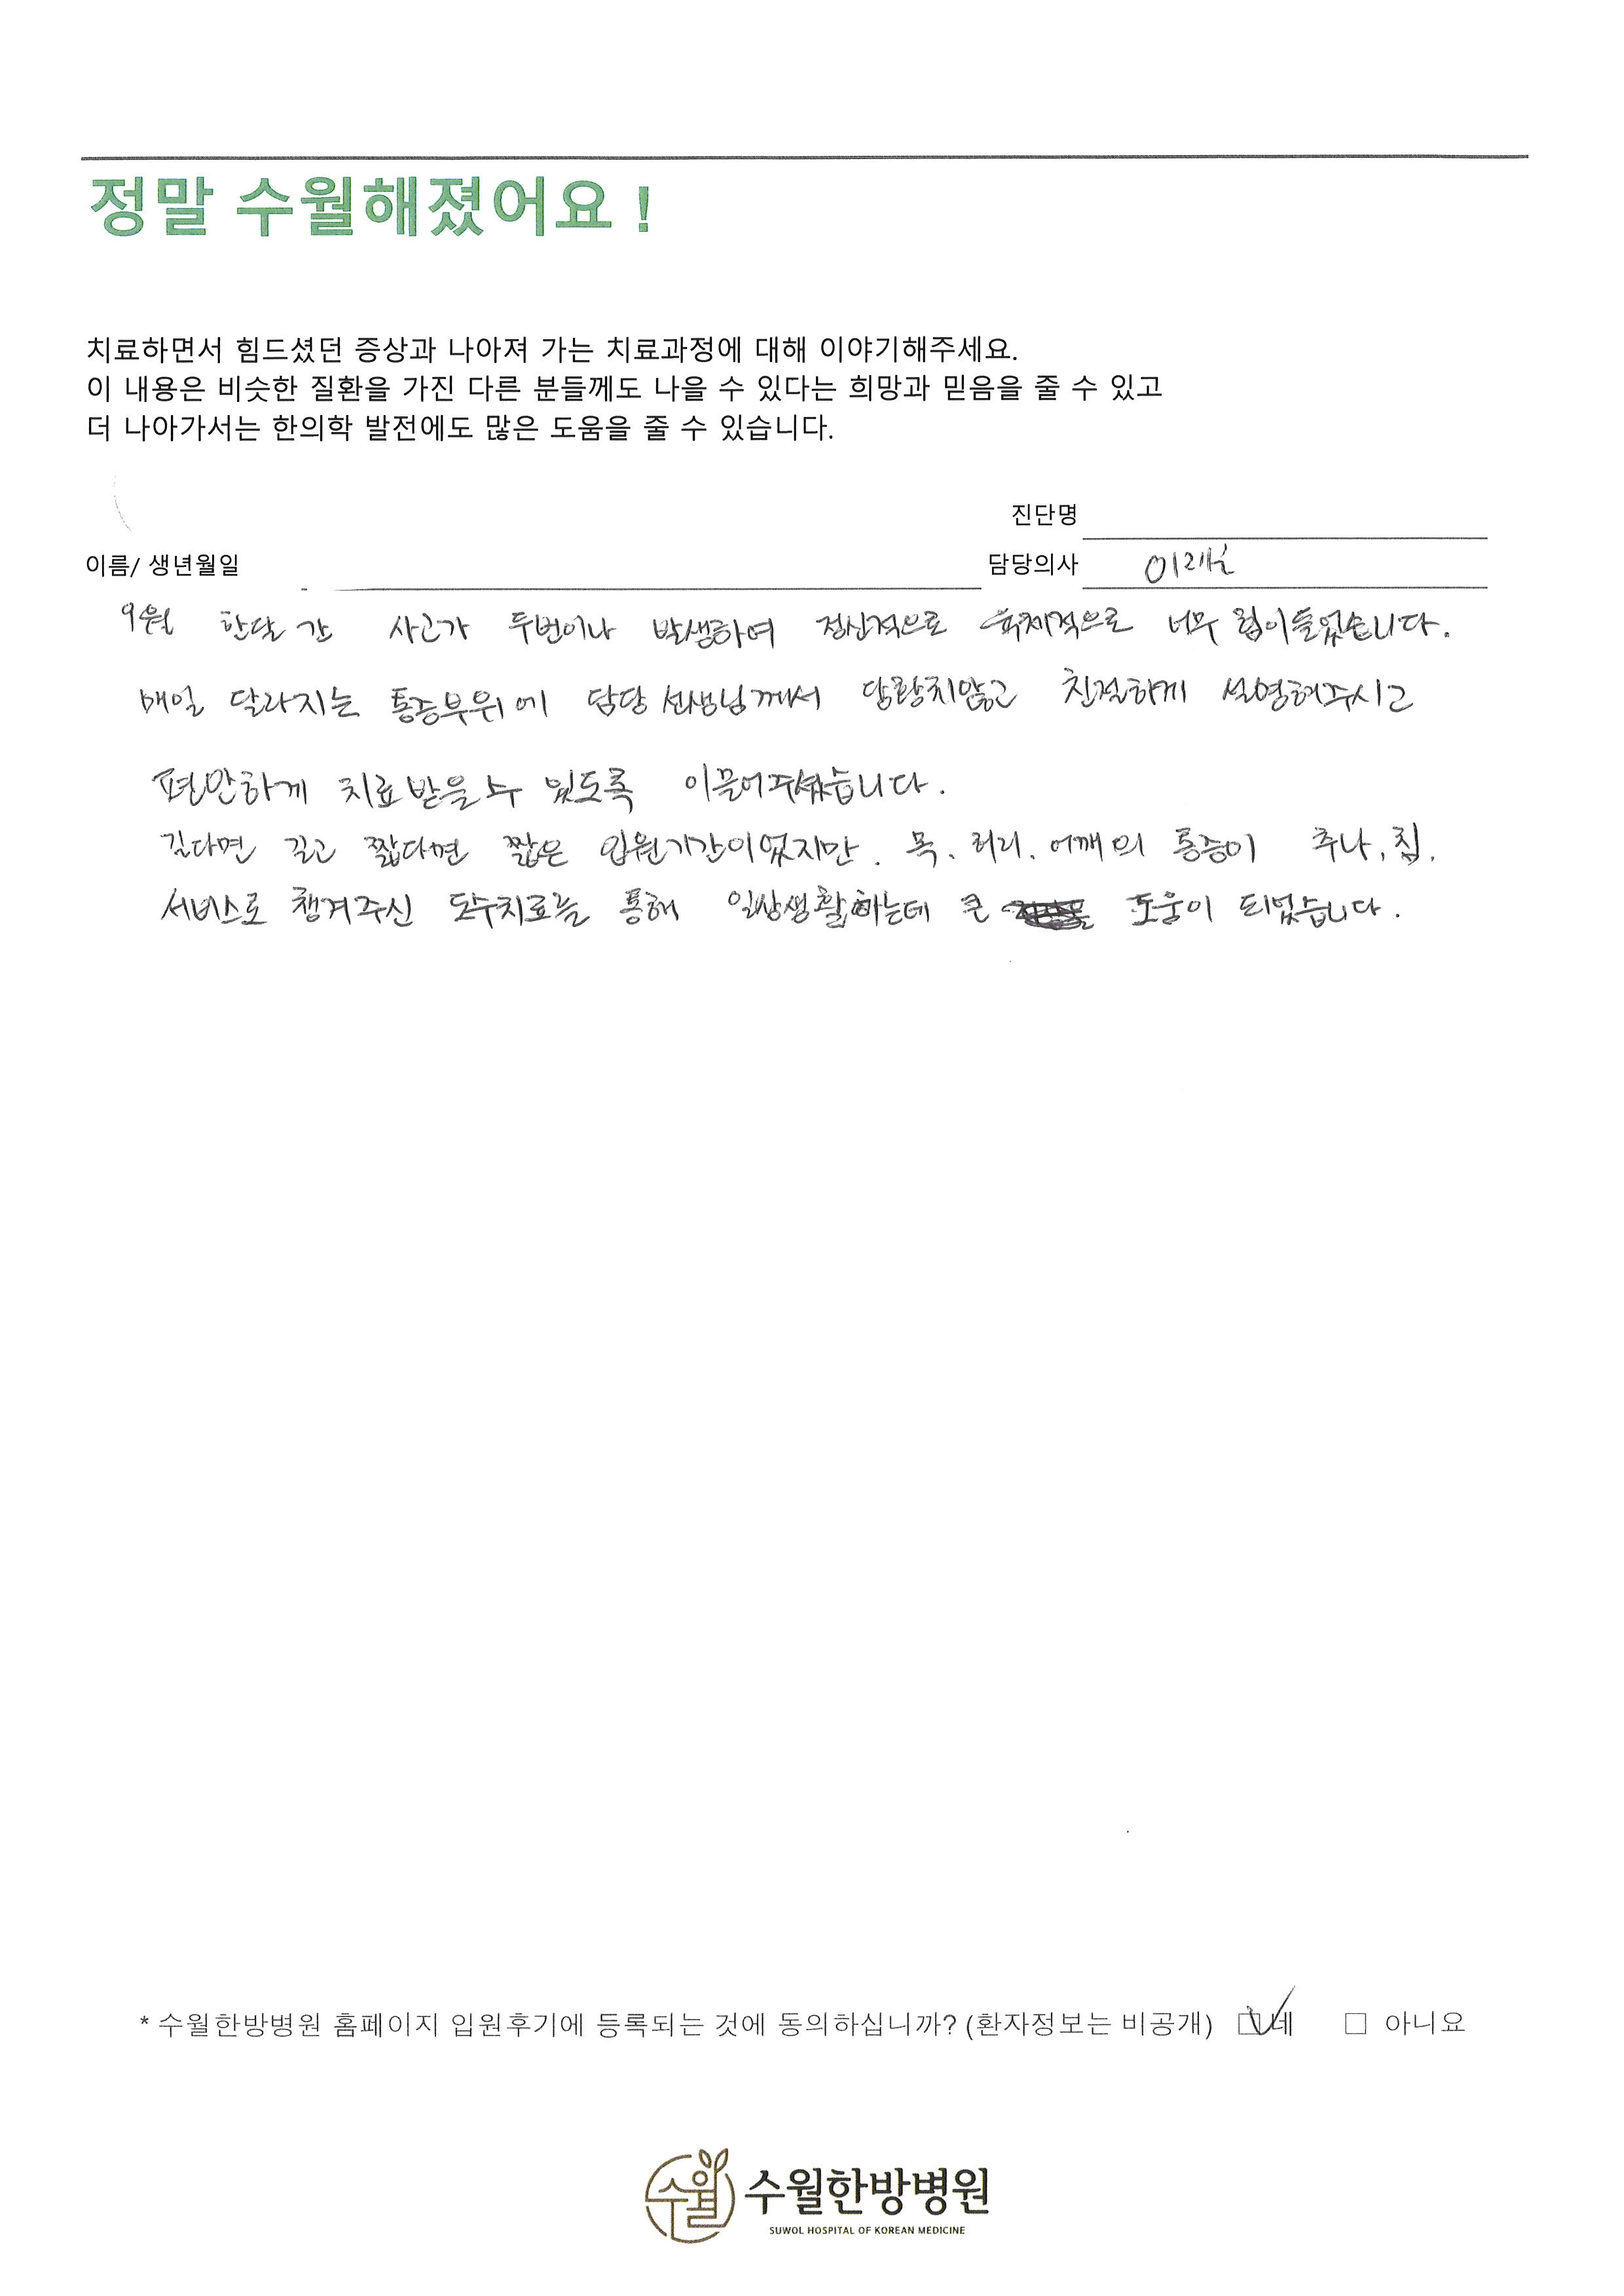 정말 수월해졌어요 !
치료하면서 힘드셨던 증상과 나아져 가는 치료과정에 대해 이야기해주세요.
이 내용은 비슷한 질환을 가진 다른 분들께도 나을 수 있다는 희망과 믿음을 줄 수 있고
더 나아가서는 한의학 발전에도 많은 도움을 줄 수 있습니다.
진단명
이름/ 생년월일 담당의사
9월 한달 간 사고가 두번이나 발생하여 정신적으로 육체적으로 너무 힘이들었습니다.
매일 달라지는 통증부위에 담당 선생님께서 당황치않고 친절하게 설명해주시고
편안하게 치료받을 수 있도록 이끌어주셨습니다.
길다면 길고 짧다면 짧은 입원기간이었지만. 목, 허리, 어깨의 통증이 추나, 침,
서비스로 챙겨주신 도수치료를 통해 일상생활하는데 큰 도움이 되었습니다.
* 수월한방병원 홈페이지 입원후기에 등록되는 것에 동의하십니까? (환자정보는 비공개) ☑ 네 □ 아니요
수월 수월한방병원
SUWOL HOSPITAL OF KOREAN MEDICINE